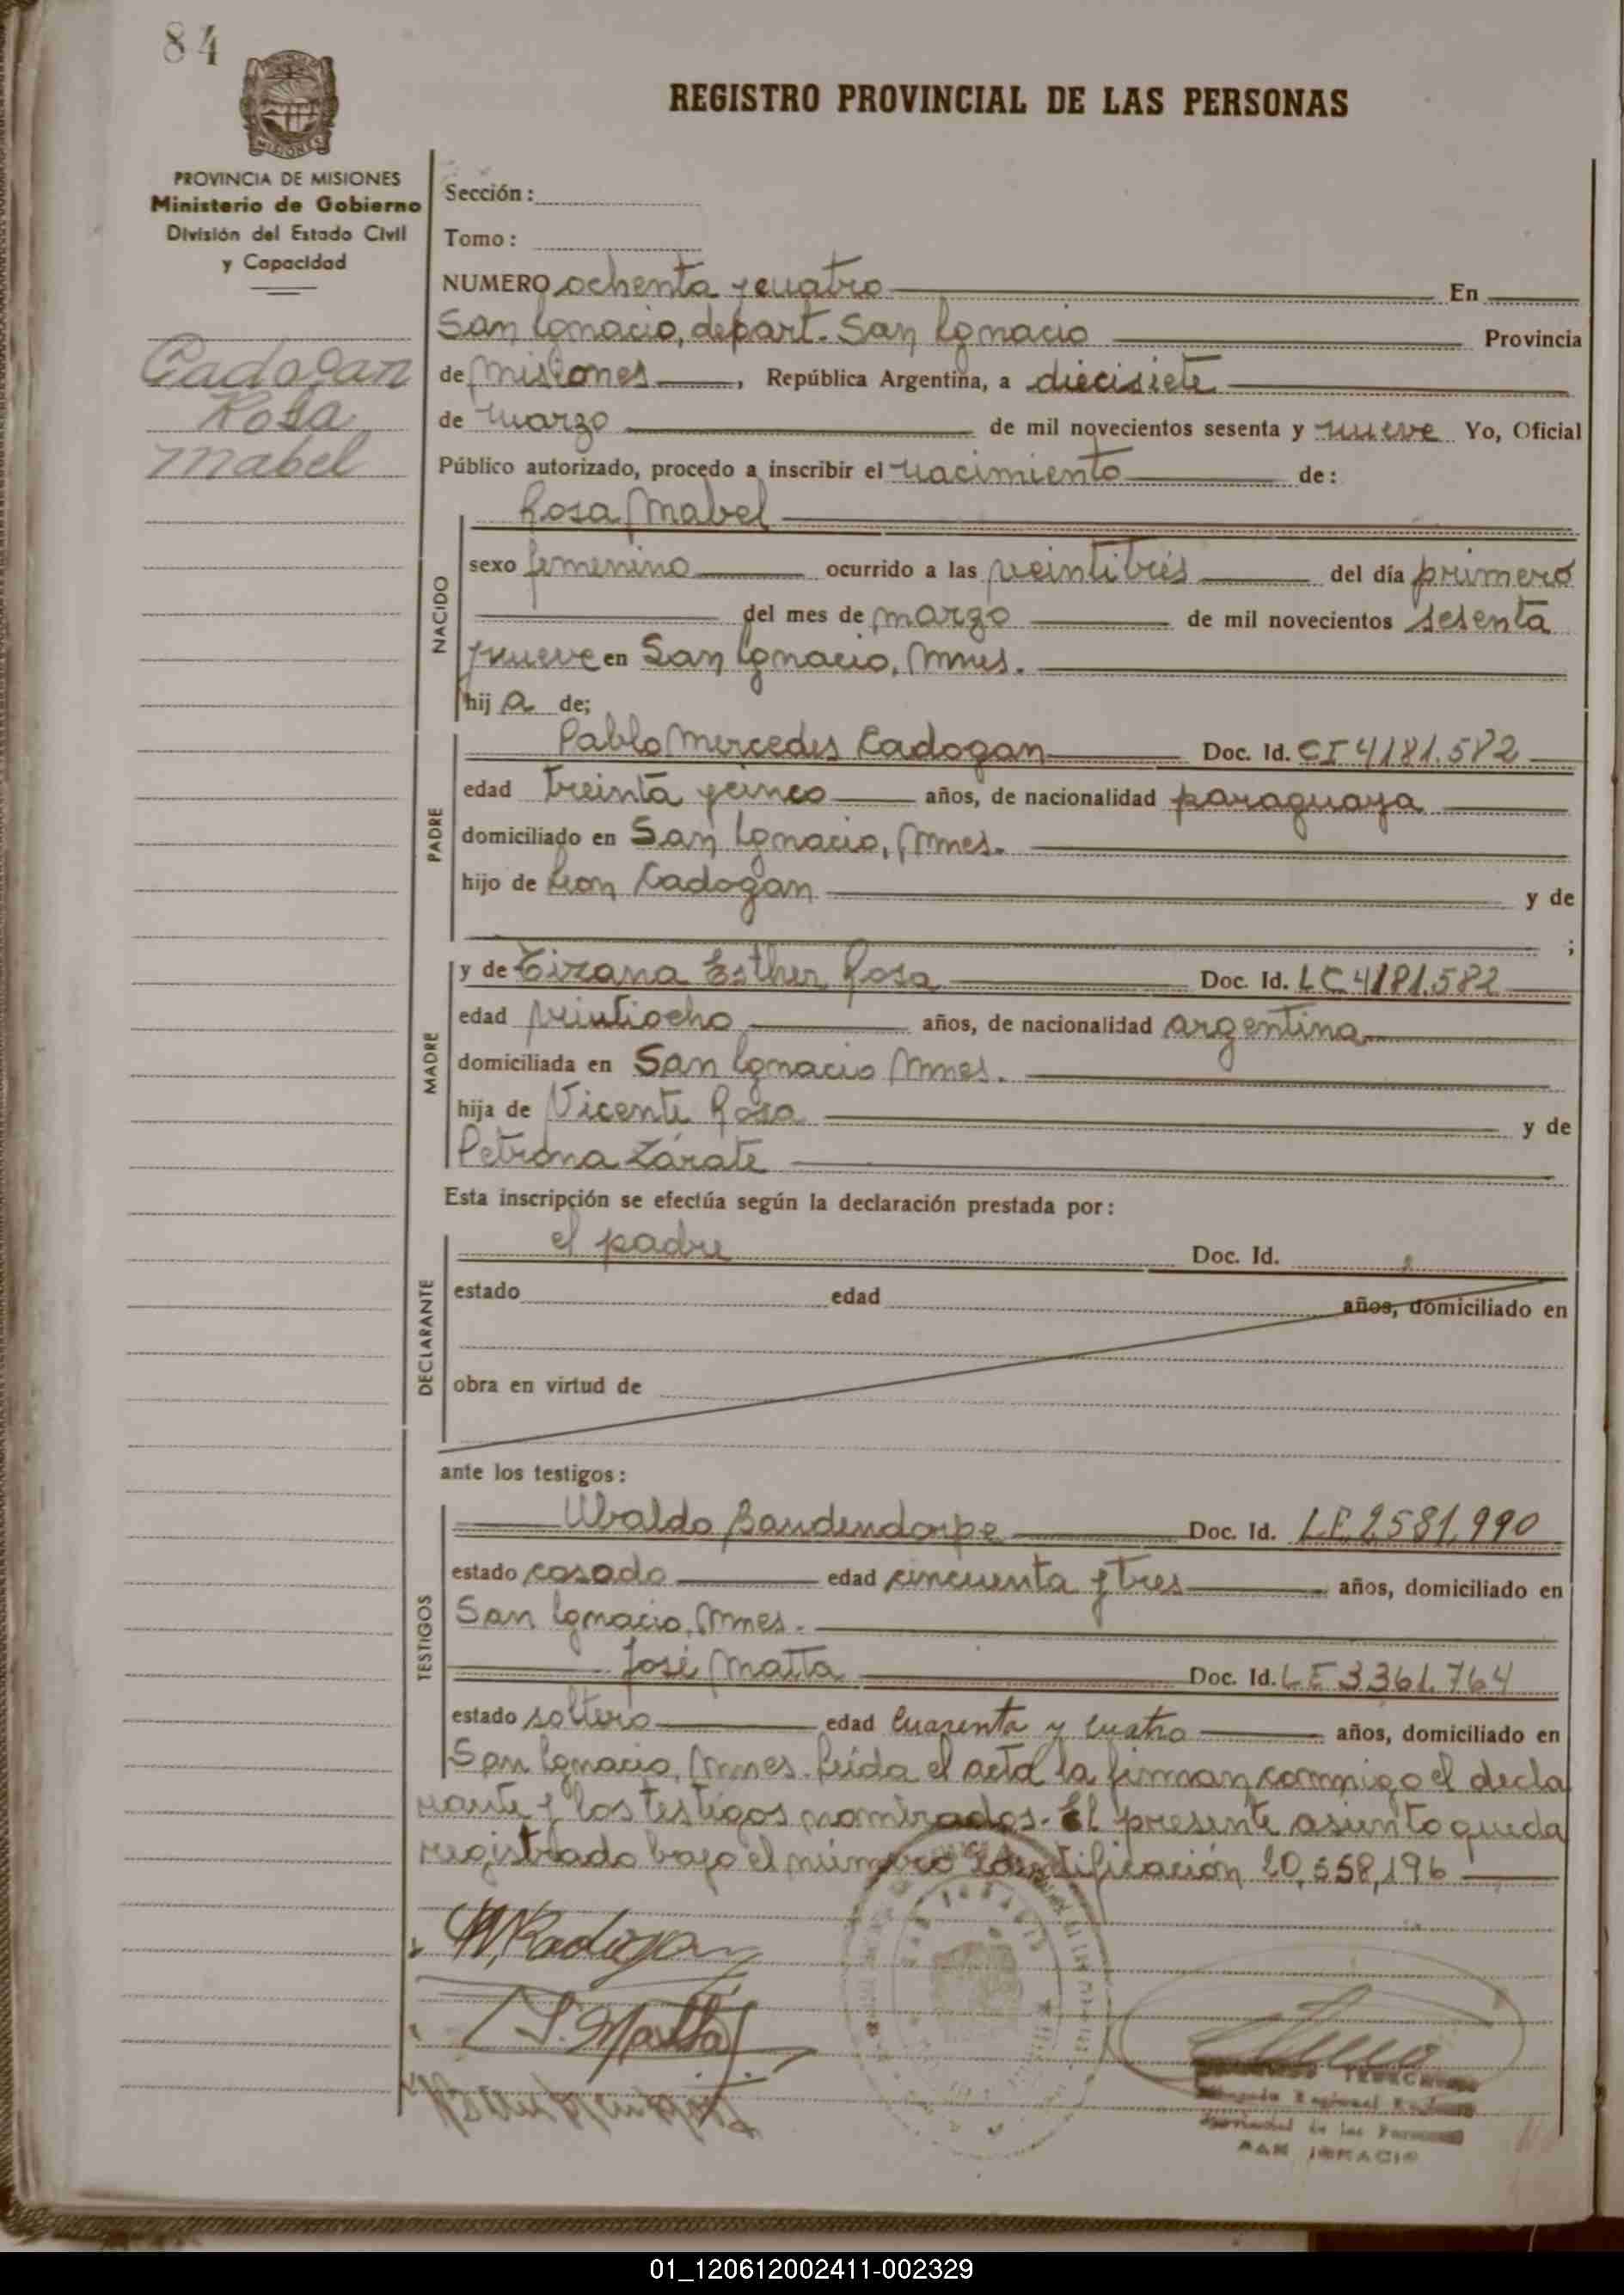 84
MISIONES
PROVINCIA DE MISIONES
Ministerio de Gobierno
División del Estado Civil
y Capacidad
Cadogan
Rosa
Mabel
REGISTRO PROVINCIAL DE LAS PERSONAS
Sección:
Tomo:
NUMERO ochenta y cuatro En
San Ignacio, depart. San Ignacio Provincia
de Misiones, República Argentina, a diecisiete
de marzo de mil novecientos sesenta y nueve Yo, Oficial
Público autorizado, procedo a inscribir el nacimiento de:
Rosa Mabel
NACIDO
sexo femenino ocurrido a las veintitrés del día primero
del mes de marzo de mil novecientos sesenta
y nueve en San Ignacio, Mnes.
hij a de;
PADRE
Pablo Mercedes Cadogan Doc. Id. CI 4181.582
edad treinta y cinco años, de nacionalidad paraguaya
domiciliado en San Ignacio, Mnes.
hijo de Leon Cadogan y de
;
MADRE
y de Esther Rosa Doc. Id. LC 4181.582
edad veintiocho años, de nacionalidad argentina
domiciliada en San Ignacio Mnes.
hija de Vicente Rosa y de
Petrona Zárate
Esta inscripción se efectúa según la declaración prestada por:
DECLARANTE
el padre Doc. Id.
estado edad años, domiciliado en
obra en virtud de
ante los testigos:
TESTIGOS
Ubaldo Bandendorpe Doc. Id. LE 2581.990
estado casado edad cincuenta y tres años, domiciliado en
San Ignacio, Mnes.
José Matta Doc. Id. LE 3361.764
estado soltero edad cuarenta y cuatro años, domiciliado en
San Ignacio, Mnes. Leída el acta la firman conmigo el decla
rante y los testigos nombrados. El presente asiento queda
registrado bajo el número identificación 20,558,196
Cadogan
J. Matta
Provincial de las Personas
SAN IGNACIO
01_120612002411-002329